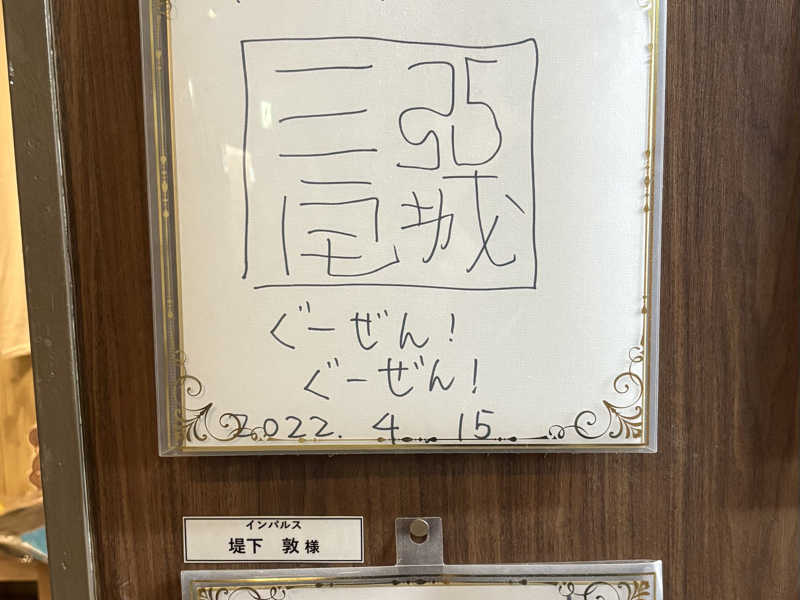 三宅
弘城
ぐーぜん!
ぐーぜん!
2022. 4. 15
インパルス
堤下 敦 様